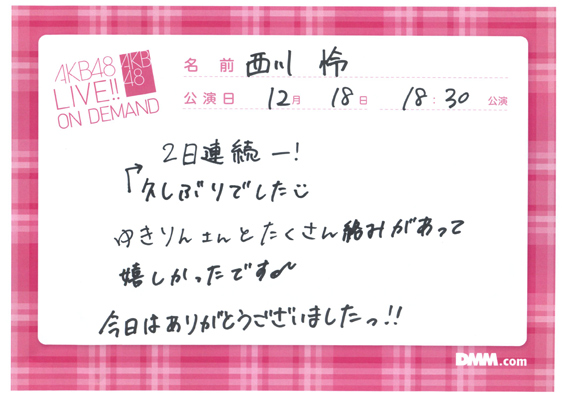 AKB48
LIVE!!
ON DEMAND
AKB
48
名前 西川 怜
公演日 12月 18日 18:30 公演
2日連続ー!
久しぶりでした
ゆきりんさんとたくさん絡みがあって
嬉しかったです
今日はありがとうございましたっ!!
DMM.com